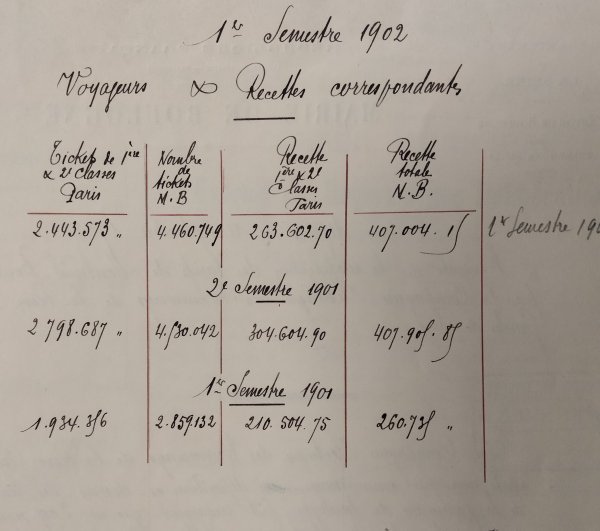 1er Semestre 1902
Voyageurs & Recettes correspondants
Tickets de 1ère & 2e Classes Paris
Nombre de tickets M.B
Recette 1ère & 2e Classes Paris
Recette totale M.B.
2.443.573 „ 4.460.749 263.602.70 407.004.15 1er Semestre
2e Semestre 1901
2.798.687 „ 4.530.042 304.604.90 407.905.85
1er Semestre 1901
1.934.356 2.859.132 210.504.75 260.735 „